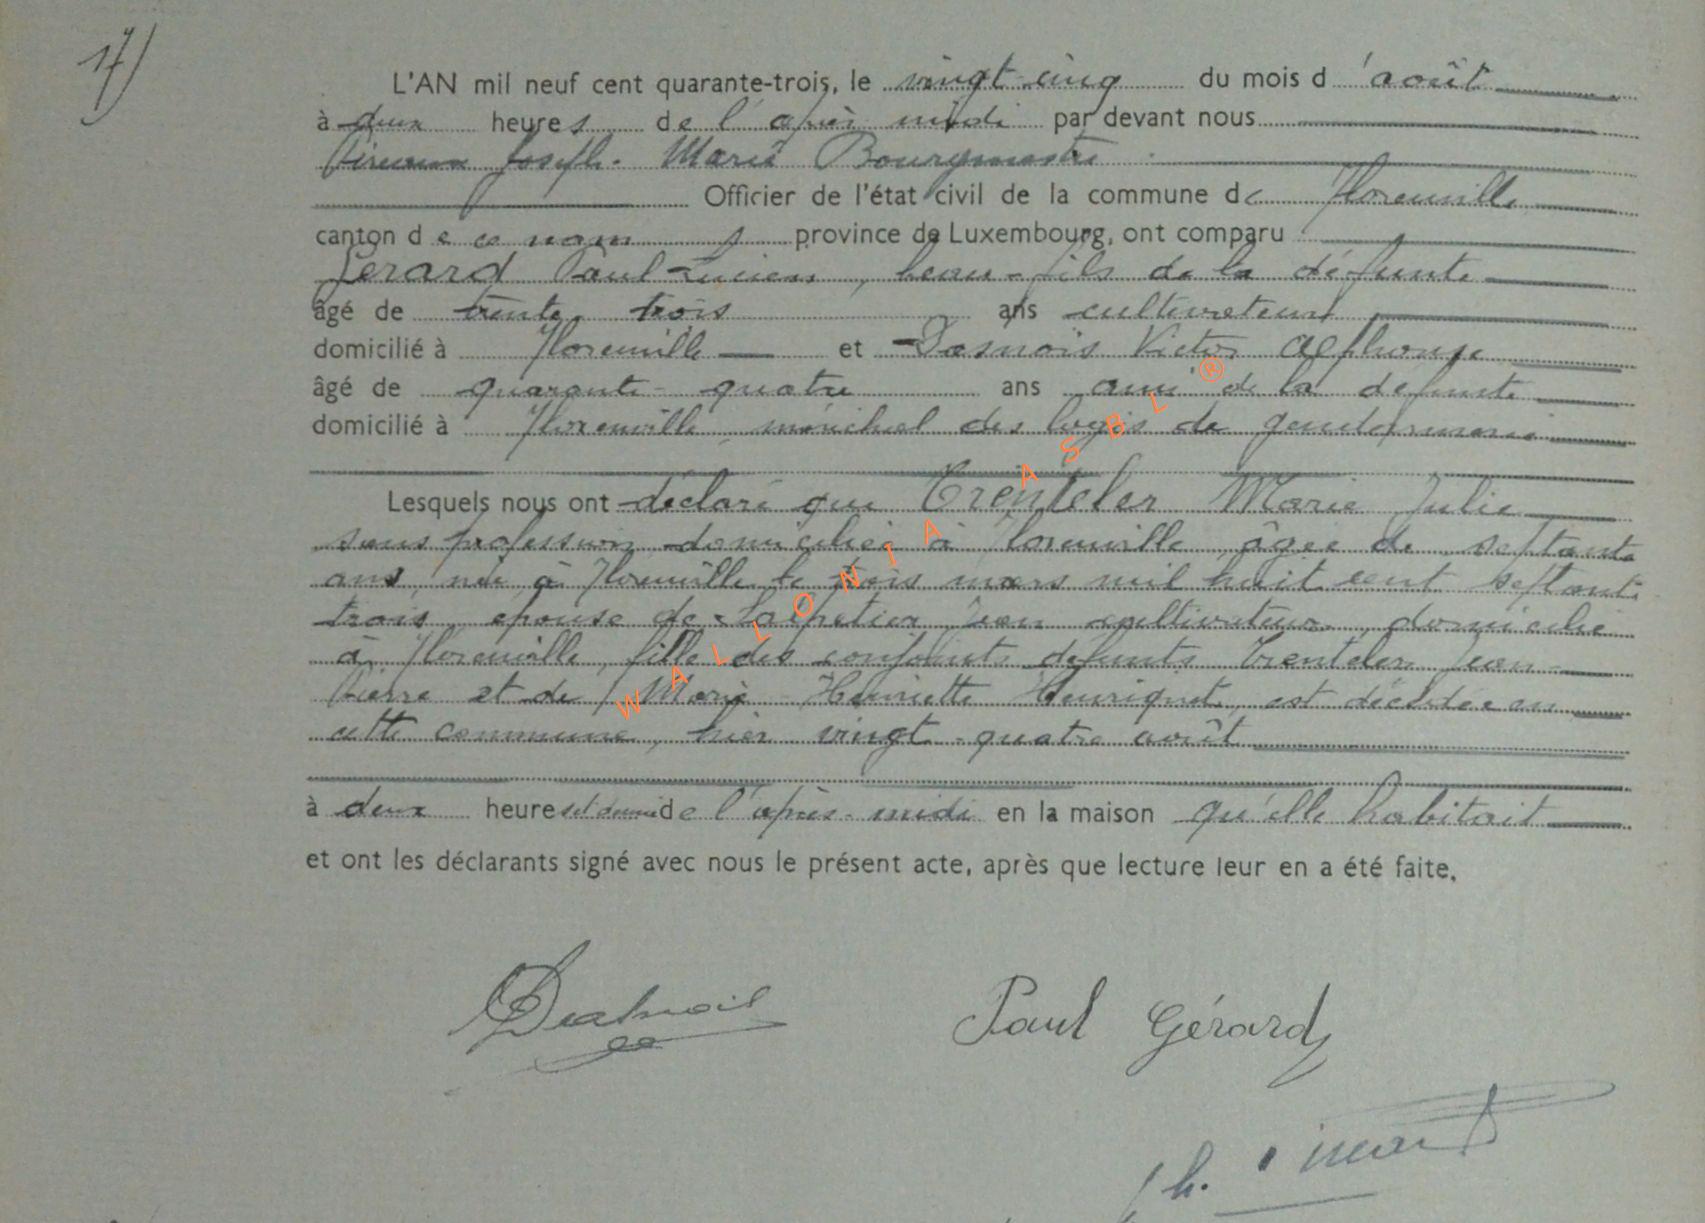 17)
L'AN mil neuf cent quarante-trois, le vingt-cinq du mois d'août
à deux heures de l'après midi par devant nous
Joseph-Marie Bourgmestre
Officier de l'état civil de la commune de Florenville
canton de ce nom, province de Luxembourg, ont comparu
Gerard Paul-Lucien, beau-fils de la défunte
âgé de trente-trois ans cultivateur
domicilié à Florenville et Dasnois Victor Alphonse
âgé de quarante-quatre ans ami de la défunte
domicilié à Florenville, maréchal des logis de gendarmerie
Lesquels nous ont déclaré que Trenteler Marie Julie
sans profession, domiciliée à Florenville, âgée de septante
ans, née à Florenville le trois mars mil huit cent septante
trois, épouse de Jean cultivateur, domicilié
à Florenville, fille des conjoints défunts Trenteler Jean-
Pierre et de Marie Henriette Henriquet, est décédée en
cette commune, hier vingt-quatre août
à deux heures et demi de l'après-midi en la maison qu'elle habitait
et ont les déclarants signé avec nous le présent acte, après que lecture leur en a été faite.
Paul Gérard
WALLONIA ASBL ®